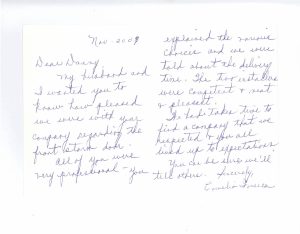 Nov. 2009
Dear Danny,
My husband and
I wanted you to
know how pleased
we were with your
company regarding the
front storm door.
All of you were
very professional - you
explained the various
choices and we were
told about the delivery
time. The two installers
were competent & neat
& pleasant.
It had taken time to
find a company that we
respected & you all
lived up to expectations.
You can be sure we'll
tell others. Sincerely,